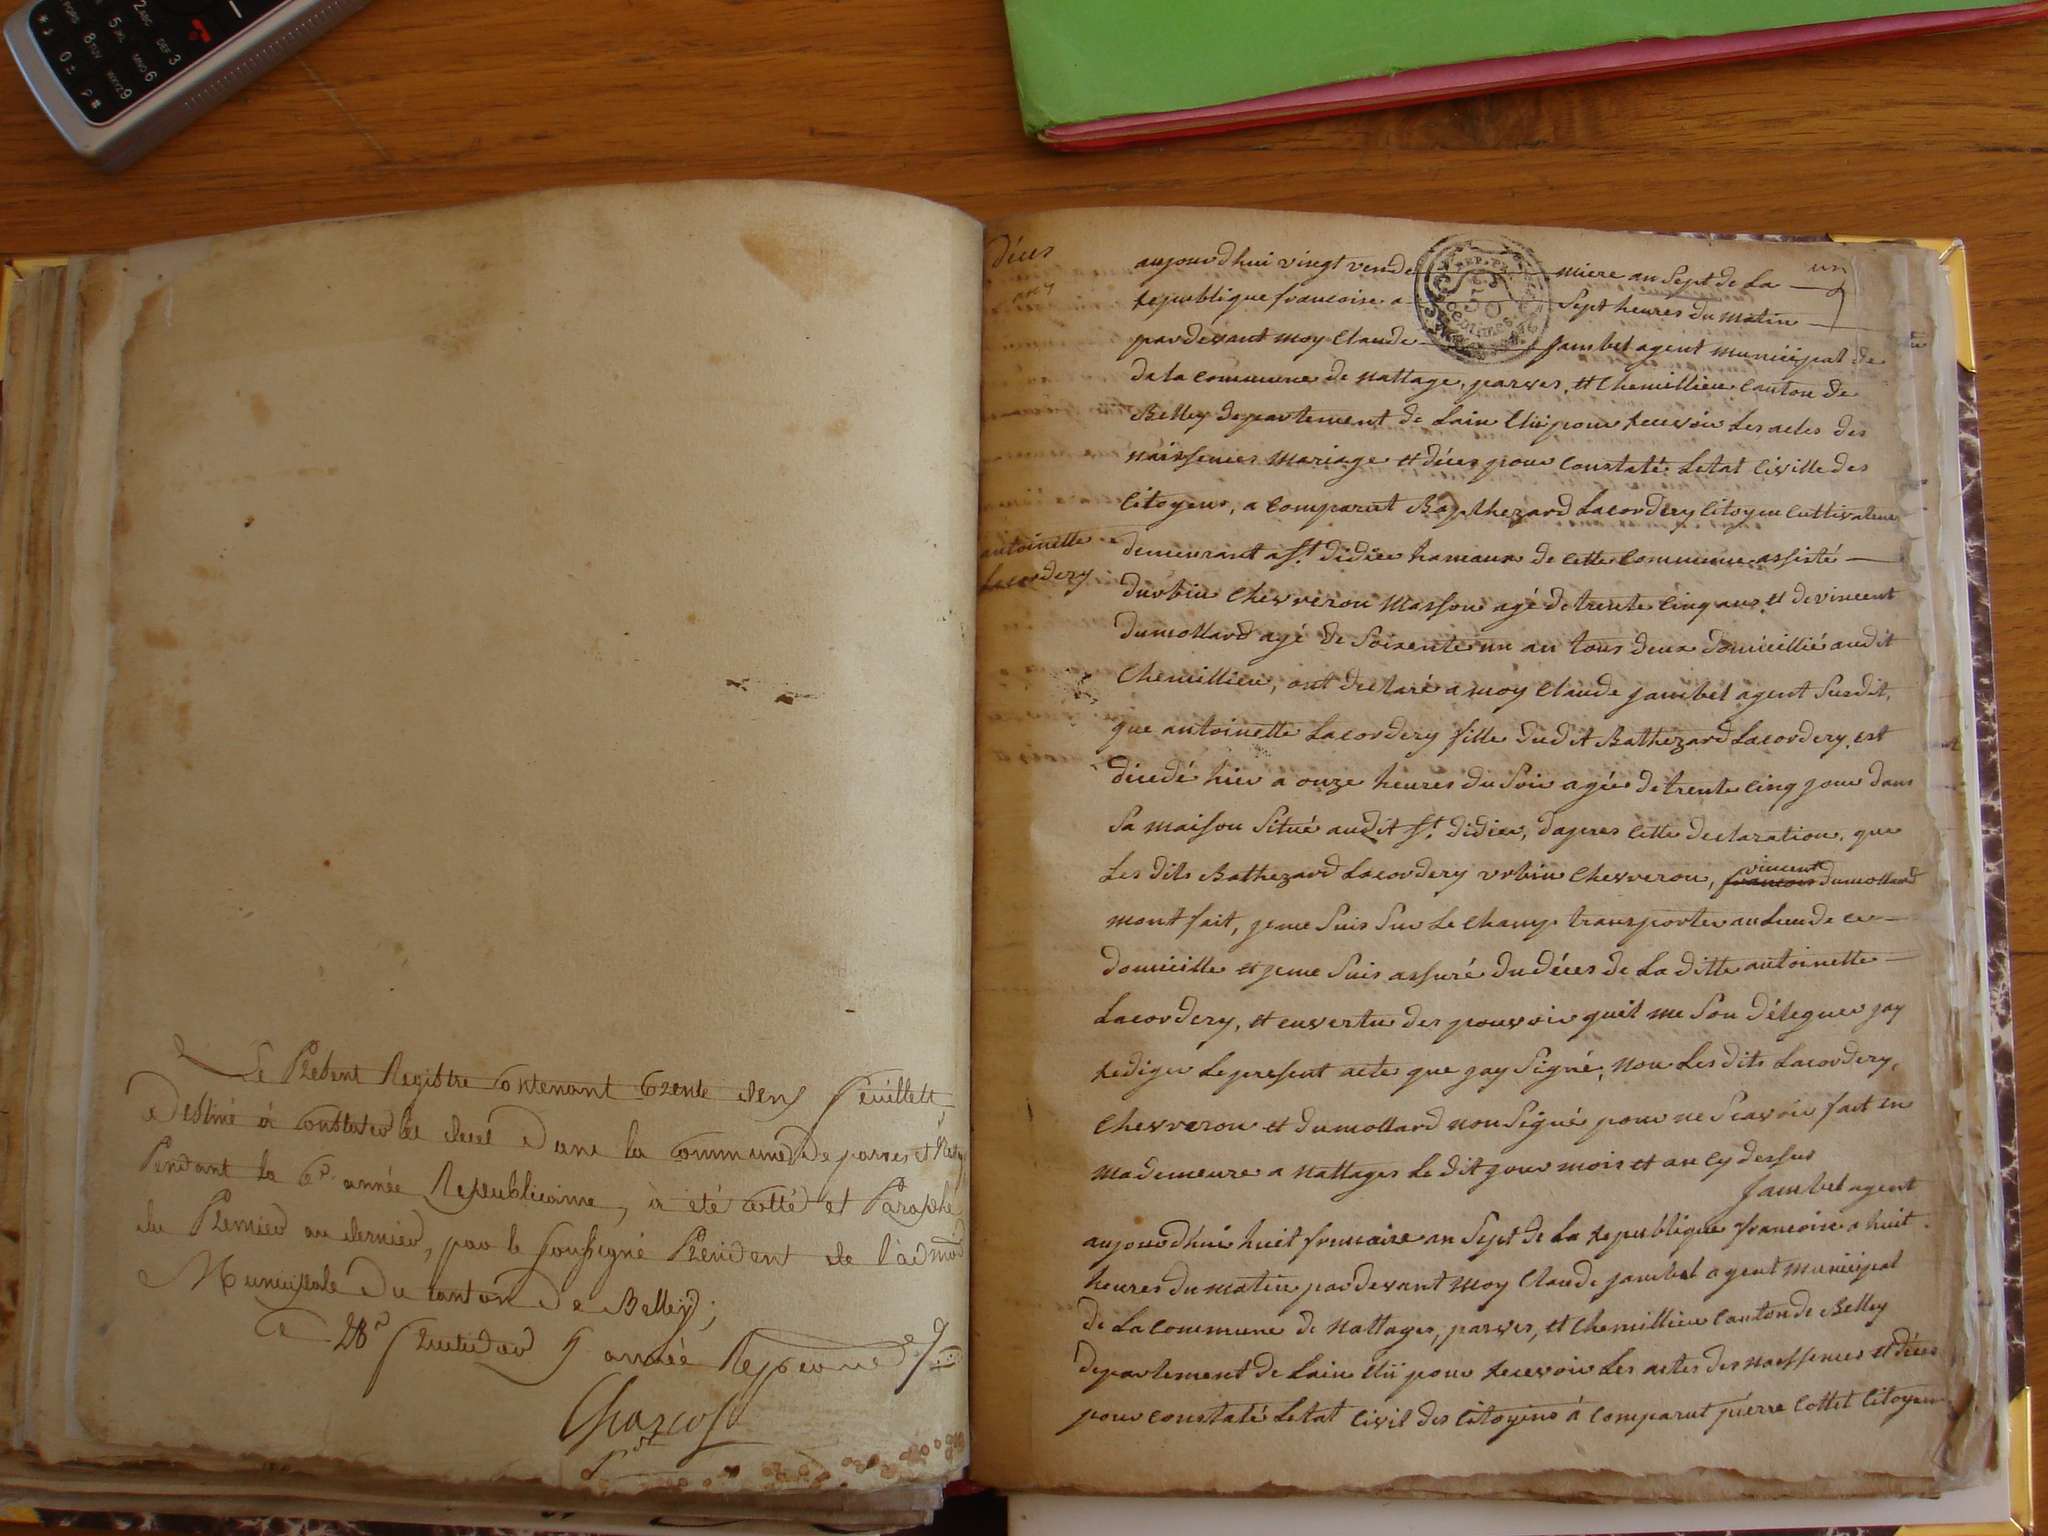 Le Présent Registre Contenant trente deux feuillets
Destiné à constater les décès dans la commune de parves et
Pendant la 6e année Républicaine, à été cotté et Paraphé
du Premier au dernier, par le soussigné Président de l'adm.on
Municipale du canton de Belley;
28e fructidor 5 année Repeanne
Décès
an 7
un
aujourdhui vingt vende miere an Sept de La
republique francoise a Sept heures du matin
pardevant moy Claude Jambet agent municipal de
de la commune de nattage, parves, et Chemillieu Canton de
Belley departement de Lain Elü pour recevoir Les actes des
naissences mariage et déces pour Constaté Letat Civille des
Citoyens, a comparut Bapthezard Lacordery Citoyen Cultivateur
antoinette
Lacordery
demeurant a St. didier hamaux de cette Commune assisté
durbin Chevreron Masson agé de trente Cinq ans et de vincent
dumollard agé de Soixente un an tous deux domicillié audit
Chemillieu, ont declaré a moy Claude jambet agent Susdit,
que antoinette Lacordery fille dudit Bathezard Lacordery, est
dicedé hier a onze heures du Soir agée de trente Cinq jour dans
Sa maison Situé audit St. didier, dapres Cette declaration, que
vincent
Les dits Bathezard Lacordery urbin Chevreron, francois dumollard
mont fait, je me Suis Sur Le Champ transporter au Lieu de ce
domicille et je me Suis assuré du déces de La ditte antoinette
Lacordery, et en vertu des pouvoir quil me Son déleguer jay
rediger Le present acte que jay Signé, non Les dits Lacordery,
Chevreron et dumollard non Signé pour ne Scavoir fait en
ma demeure a nattages Le dit jour mois et an cy dessus
Jambet agent
aujourdhui huit frimaire an Sept de La republique francoise a huit
heures du matin pardevant moy Claude jambet agent municipal
de La Commune de nattages, parves, et Chemillieu Canton de Belley
departement de Lain Elü pour recevoir Les actes des naissences et déces
pour constaté Letat Civil des Citoyins à comparut piérre Cottet Citoyen